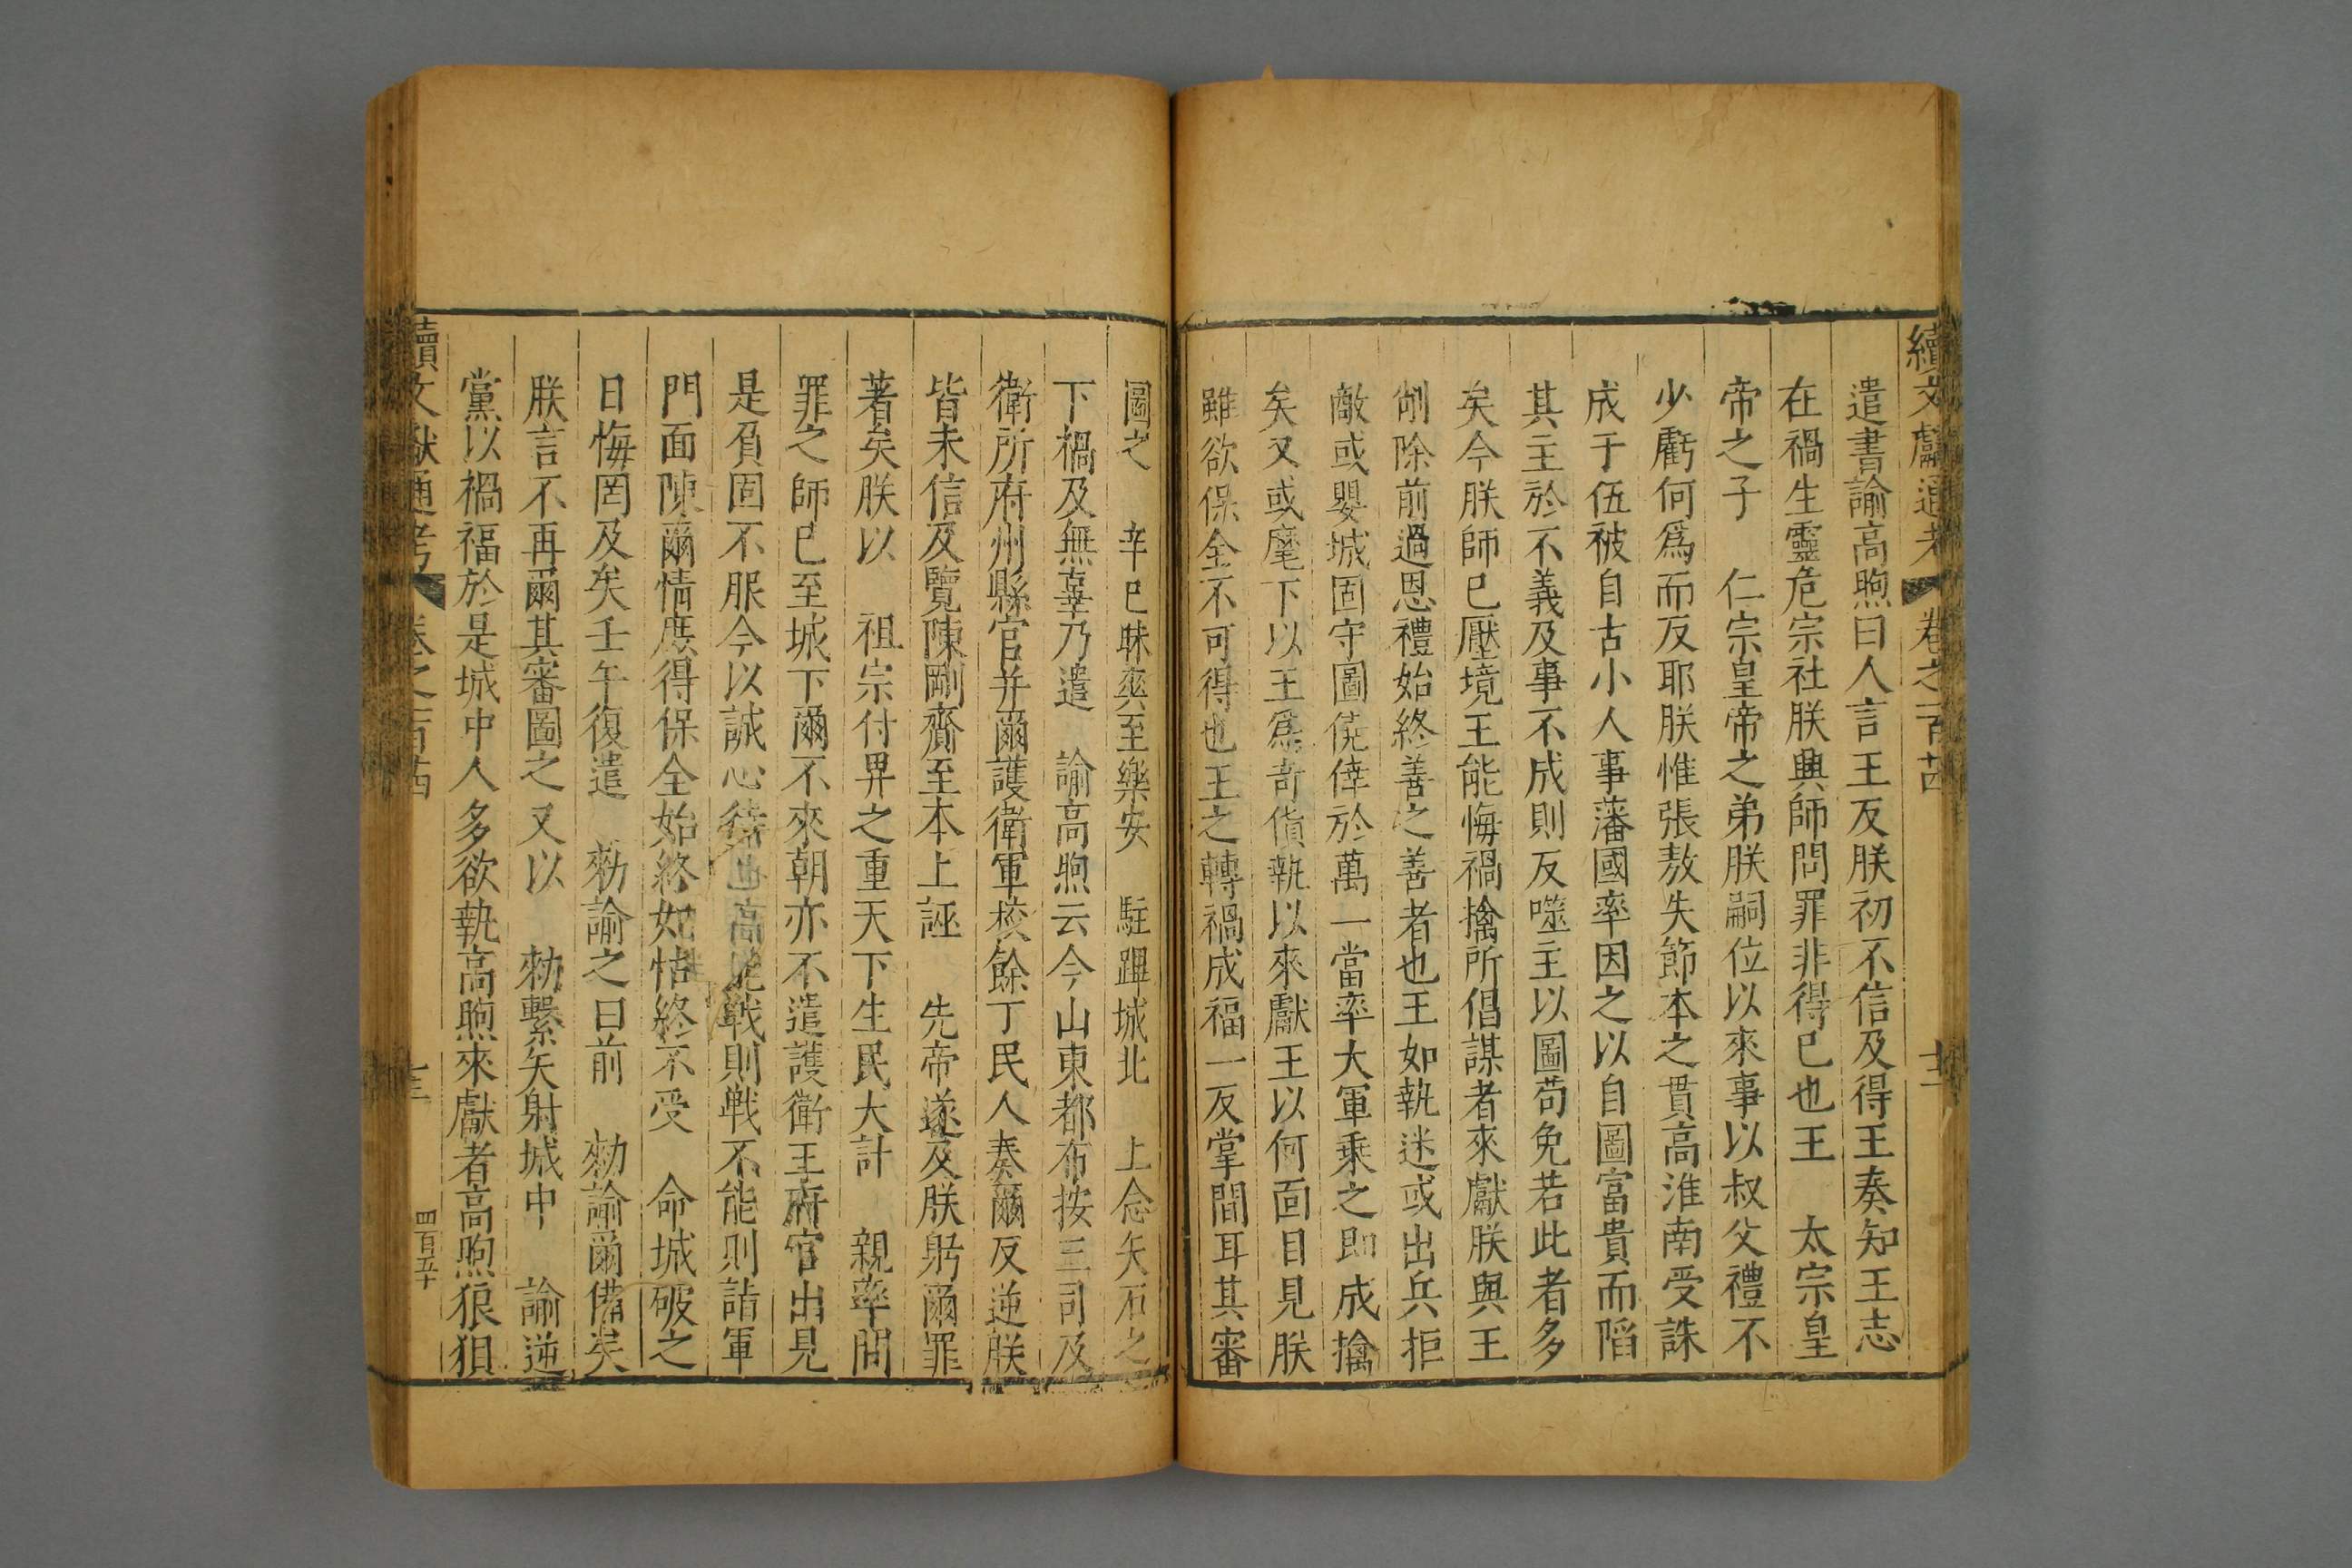 續文獻通考 卷之一百
遣書諭高煦曰人言王反朕初不信及得王奏知王志
在禍生靈危宗社朕興師問罪非得已也王 太宗皇
帝之子 仁宗皇帝之弟朕嗣位以來事以叔父禮不
少虧何爲而反耶朕惟張敖失節本之貫高淮南受誅
成于伍被自古小人事藩國率因之以自圖富貴而陷
其主於不義及事不成則反噬主以圖苟免若此者多
矣今朕師已壓境王能悔禍擒所倡謀者來獻朕與王
剷除前過恩禮始終善之善者也王如執迷或出兵拒
敵或嬰城固守圖僥倖於萬一當率大軍乗之即成擒
矣又或麾下以王爲奇貨執以來獻王以何面目見朕
雖欲保全不可得也王之轉禍成福一反掌間耳其審
圖之 辛巳昧爽至樂安 駐蹕城北 上念矢石之
下禍及無辜乃遣 諭高煦云今山東都布按三司及
衛所府州縣官并爾護衛軍校餘丁民人奏爾反逆朕
皆未信及覽陳剛齎至本上誣 先帝遂及朕躬爾罪
著矣朕以 祖宗付畀之重天下生民大計 親率問
罪之師已至城下爾不來朝亦不遣護衛王府官出見
是負固不服今以誠心待 高 戰則戰不能則詣軍
門面陳爾情庶得保全始終如怙終不受 命城破之
日悔罔及矣壬午復遣 勑諭之曰前 勑諭爾備矣
朕言不再爾其審圖之 又以 勑繫矢射城中 諭逆
黨以禍福於是城中人多欲執高煦來獻者高煦狼狽
續文獻通考 卷之一百 四百五十